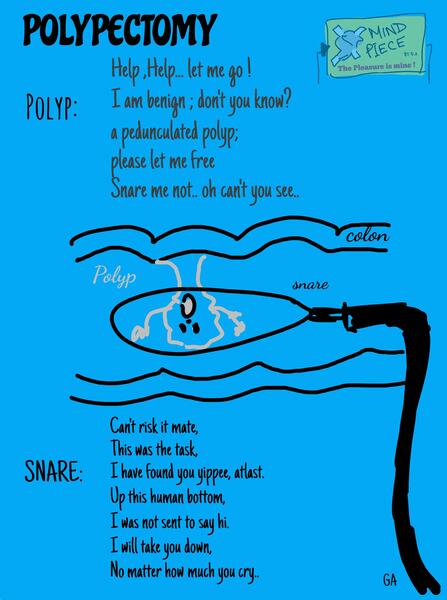 POLYPECTOMY
MIND
PIECE
BY G.A
The Pleasure is mine !
POLYP:
Help ,Help... let me go !
I am benign ; don't you know?
a pedunculated polyp;
please let me free
Snare me not.. oh can't you see..
colon
Polyp
snare
SNARE:
Can't risk it mate,
This was the task,
I have found you yippee, atlast.
Up this human bottom,
I was not sent to say hi.
I will take you down,
No matter how much you cry..
GA